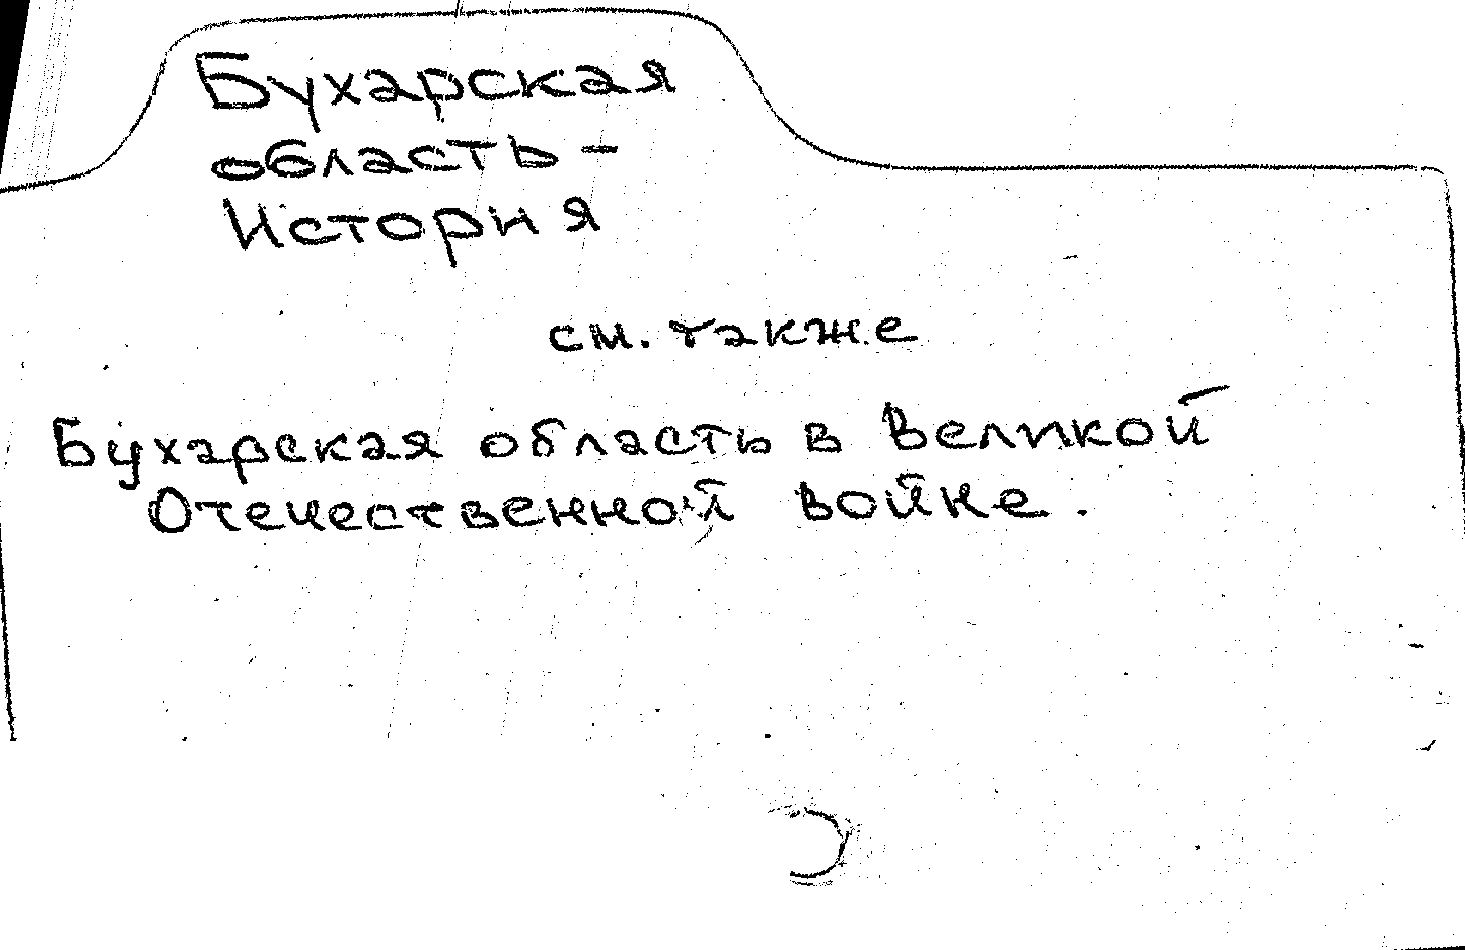 Бухарская
область -
История
см. также
Бухарская область в Великой
Отечественной войне.